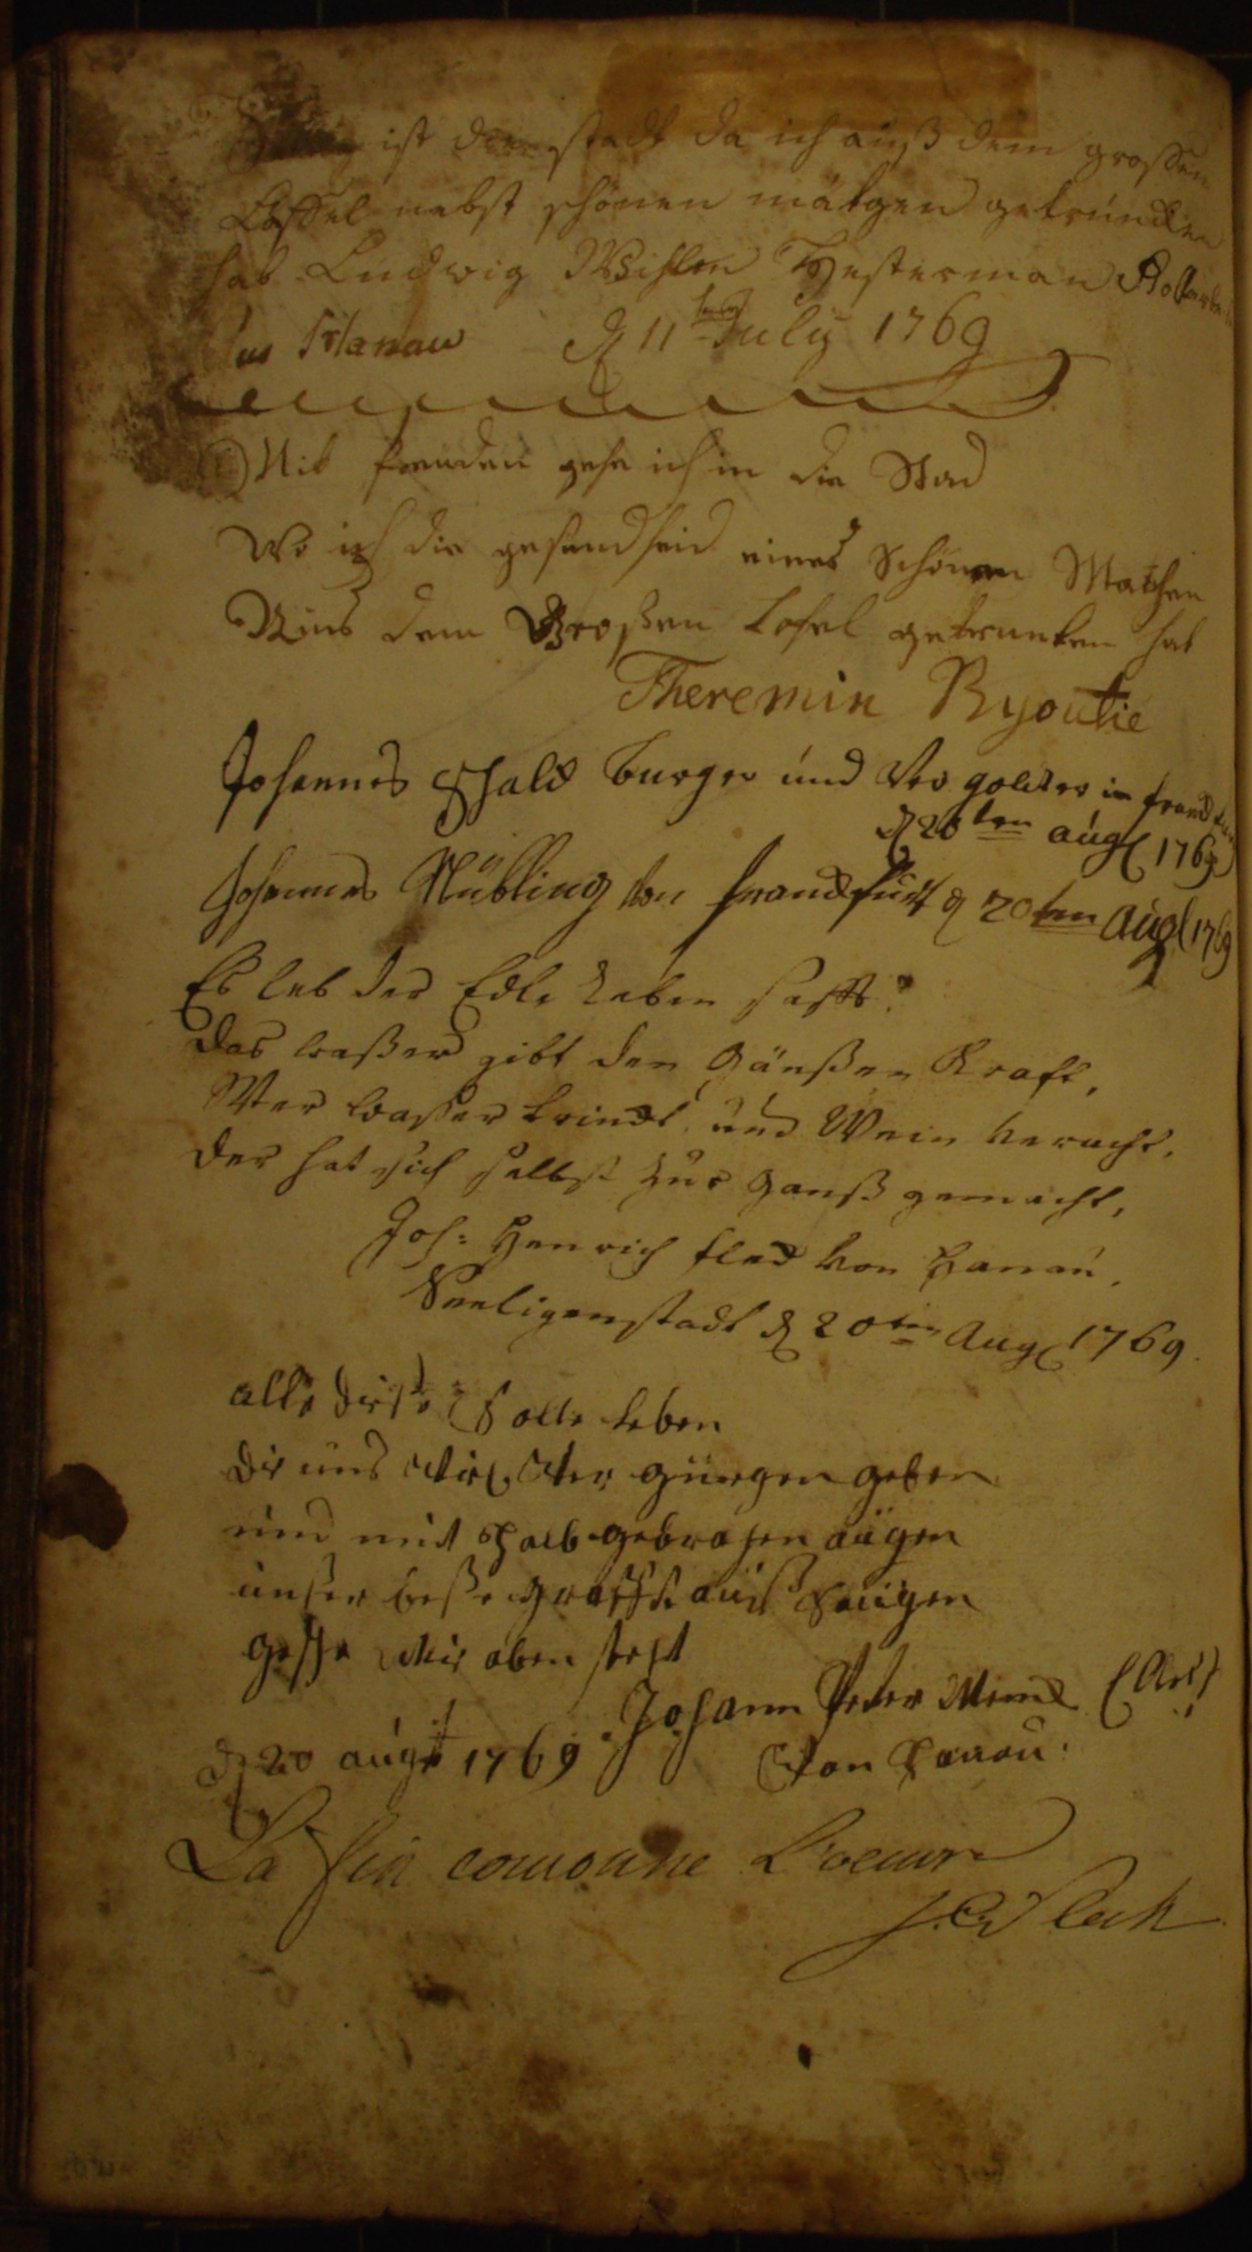 ist die stadt da ich auß dem grossen
Löffel nebst schönen mätgen getruncken
hab Ludwig Wihlm Hesterman
in Hanau d 11ten July 1769
Mit freuden gehe ich in die Stad
Wo ich die gesundheid eines Schönen Matchen
Aus dem Großen Lofel getruncken hab
Theremin Ryoutie
Johannes Schald burger und Vergolder in
d 20ten augt 1769
Johannes Nübling von franckfurt d 20ten Augt 1769
Es leb der Edle Reben safft!
das waßer gibt den Gänßen Krafft,
Wer waßer trinckt und Wein veracht,
der hat sich selbst zur Ganß gemacht,
Joh: Henrich fleck von Hanau.
Seeligenstadt d 20ten Aug 1769.
alle diese solle leben
die uns geben
und mit halb gebrochen augen
unser beste krafft auß saugen
oben steht
Johann Peter
d 20 augt 1769 von Hanau.
La fin couronne L'oeuvre